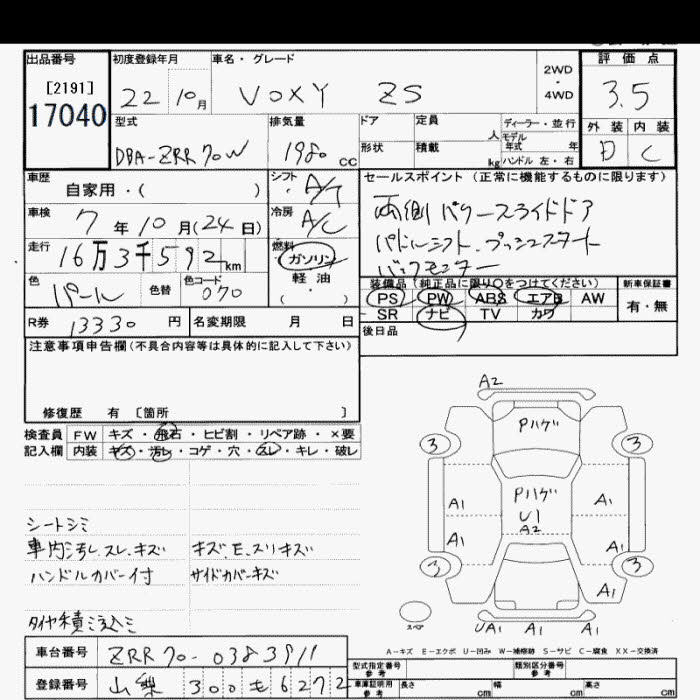 出品番号 初度登録年月 車名・グレード 評価点
[2191]
17040
22 10月
VOXY ZS
2WD
・
4WD
3.5
型式 排気量 ドア 定員 人 ディーラー・並行
DBA-ZRR70W 1980 cc
モデル年式 年
形状 積載 kg ハンドル 左・右
外装 内装
D C
車歴 自家用・( )
シフト A/T
車検 7年10月(24日)
冷房 A/C
走行 16万3千592km
燃料 ガソリン
軽油
( ・ )
色 パール 色替 色コード 070
R券 13330円 名変期限 月 日
セールスポイント (正常に機能するものに限ります)
両側パワースライドドア
パドルシフト.プッシュスタート
バックモニター
装備品(純正品に限り○をつけてください) 新車保証書
PS PW ABS エアB AW 有・無
SR ナビ TV カワ
後日品
注意事項申告欄(不具合内容等は具体的に記入して下さい)
修復歴 有 [箇所 ]
検査員 FW キズ・飛石・ヒビ割・リペア跡・×要
記入欄 内装 キズ・汚レ・コゲ・穴・スレ・キレ・破レ
シートシミ
車内汚レ.スレ.キズ キズ.E.スリキズ
ハンドルカバー付 サイドカバーキズ
タイヤ積ミ込ミ
A2
Pハゲ
3 3
Pハゲ
U1
A2
A1 A1
A1 A1
3 3
A1
UA1 A1 A1
スペア
A-キズ E-エクボ U-凹み W-補修跡 S-サビ C-腐食 XX-交換済
車台番号 ZRR70-0383911
登録番号 山梨 300 も 6272
型式指定番号 参考 類別区分番号 参考
車庫証明用 参考 長さ cm 幅 cm 高さ cm